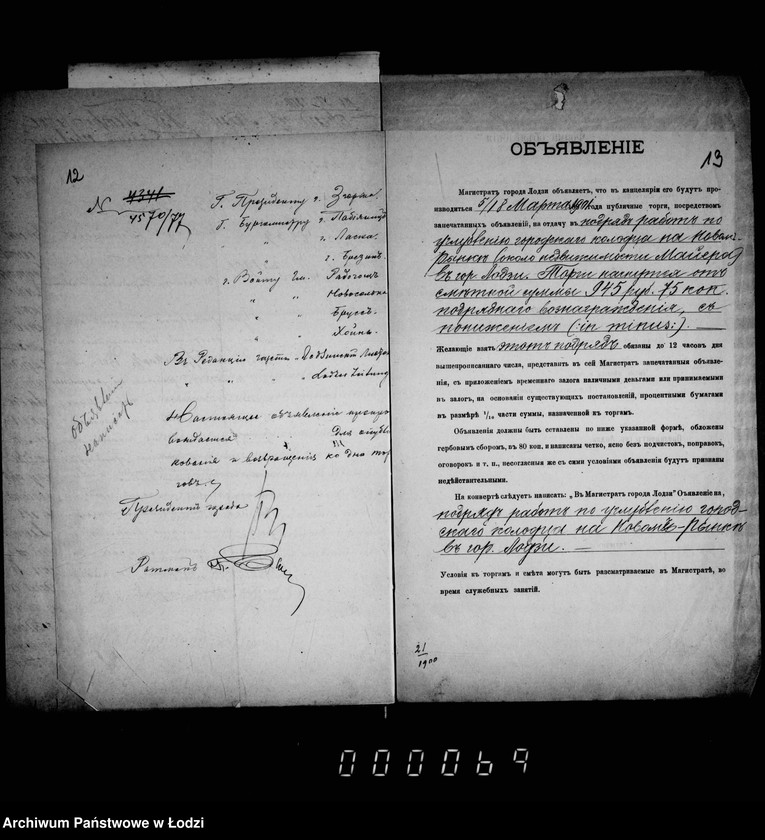 12
№ 4341
4570/77
Г. Президенту г. Згержа.
Г. Бургомистру г. Пабяниц
" г. Ласка.
" г. Брезинъ.
г. Войту гм. Радогощъ
" " Новосольна
" " Брусъ.
" " Хойны.
Въ Редакцію газеты "Лодзинскій Листокъ
" " "Lodzer Zeitung
объявленія
написать
Настоящее объявленіе препро
вождается для опубли
кованія и возвращенія ко дню тор
говъ
Президентъ города
Ратманъ
13
ОБЪЯВЛЕНІЕ
Магистратъ города Лодзи объявляетъ, что въ канцеляріи его будутъ про-
изводиться 5/18 Марта 1901 года публичные торги, посредствомъ
запечатанныхъ объявленій, на отдачу въ подрядъ работъ по
углубленію городского колодца на Новомъ-
Рынкѣ (около недвижимости Майера)
въ гор. Лодзи. Торги начнутся отъ
смѣтной суммы 945 руб. 75 коп.
подряднаго вознагражденія, съ
пониженіемъ (:in minus:).
Желающіе взять этотъ подрядъ обязаны до 12 часовъ дня
вышепрописаннаго числа, представить въ сей Магистратъ запечатанныя объявле-
нія, съ приложеніемъ временнаго залога наличными деньгами или принимаемыми
въ залогъ, на основаніи существующихъ постановленій, процентными бумагами
въ размѣрѣ 1/10 части суммы, назначенной къ торгамъ.
Объявленія должны быть оставлены по ниже указанной формѣ, обложены
гербовымъ сборомъ, въ 80 коп. и написаны четко, ясно безъ подчистокъ, поправокъ,
оговорокъ и т. п., несогласныя же съ сими условіями объявленія будутъ признаны
недѣйствительными.
На конвертѣ слѣдуетъ написать: „Въ Магистратъ города Лодзи" Объявленіе на,
подрядъ работъ по углубленію город-
скаго колодца на Новомъ-Рынкѣ
въ гор. Лодзи.
Условія къ торгамъ и смѣта могутъ быть разсматриваемы въ Магистратѣ, во
время служебныхъ занятій.
21
1900
000069
Archiwum Państwowe w Łodzi